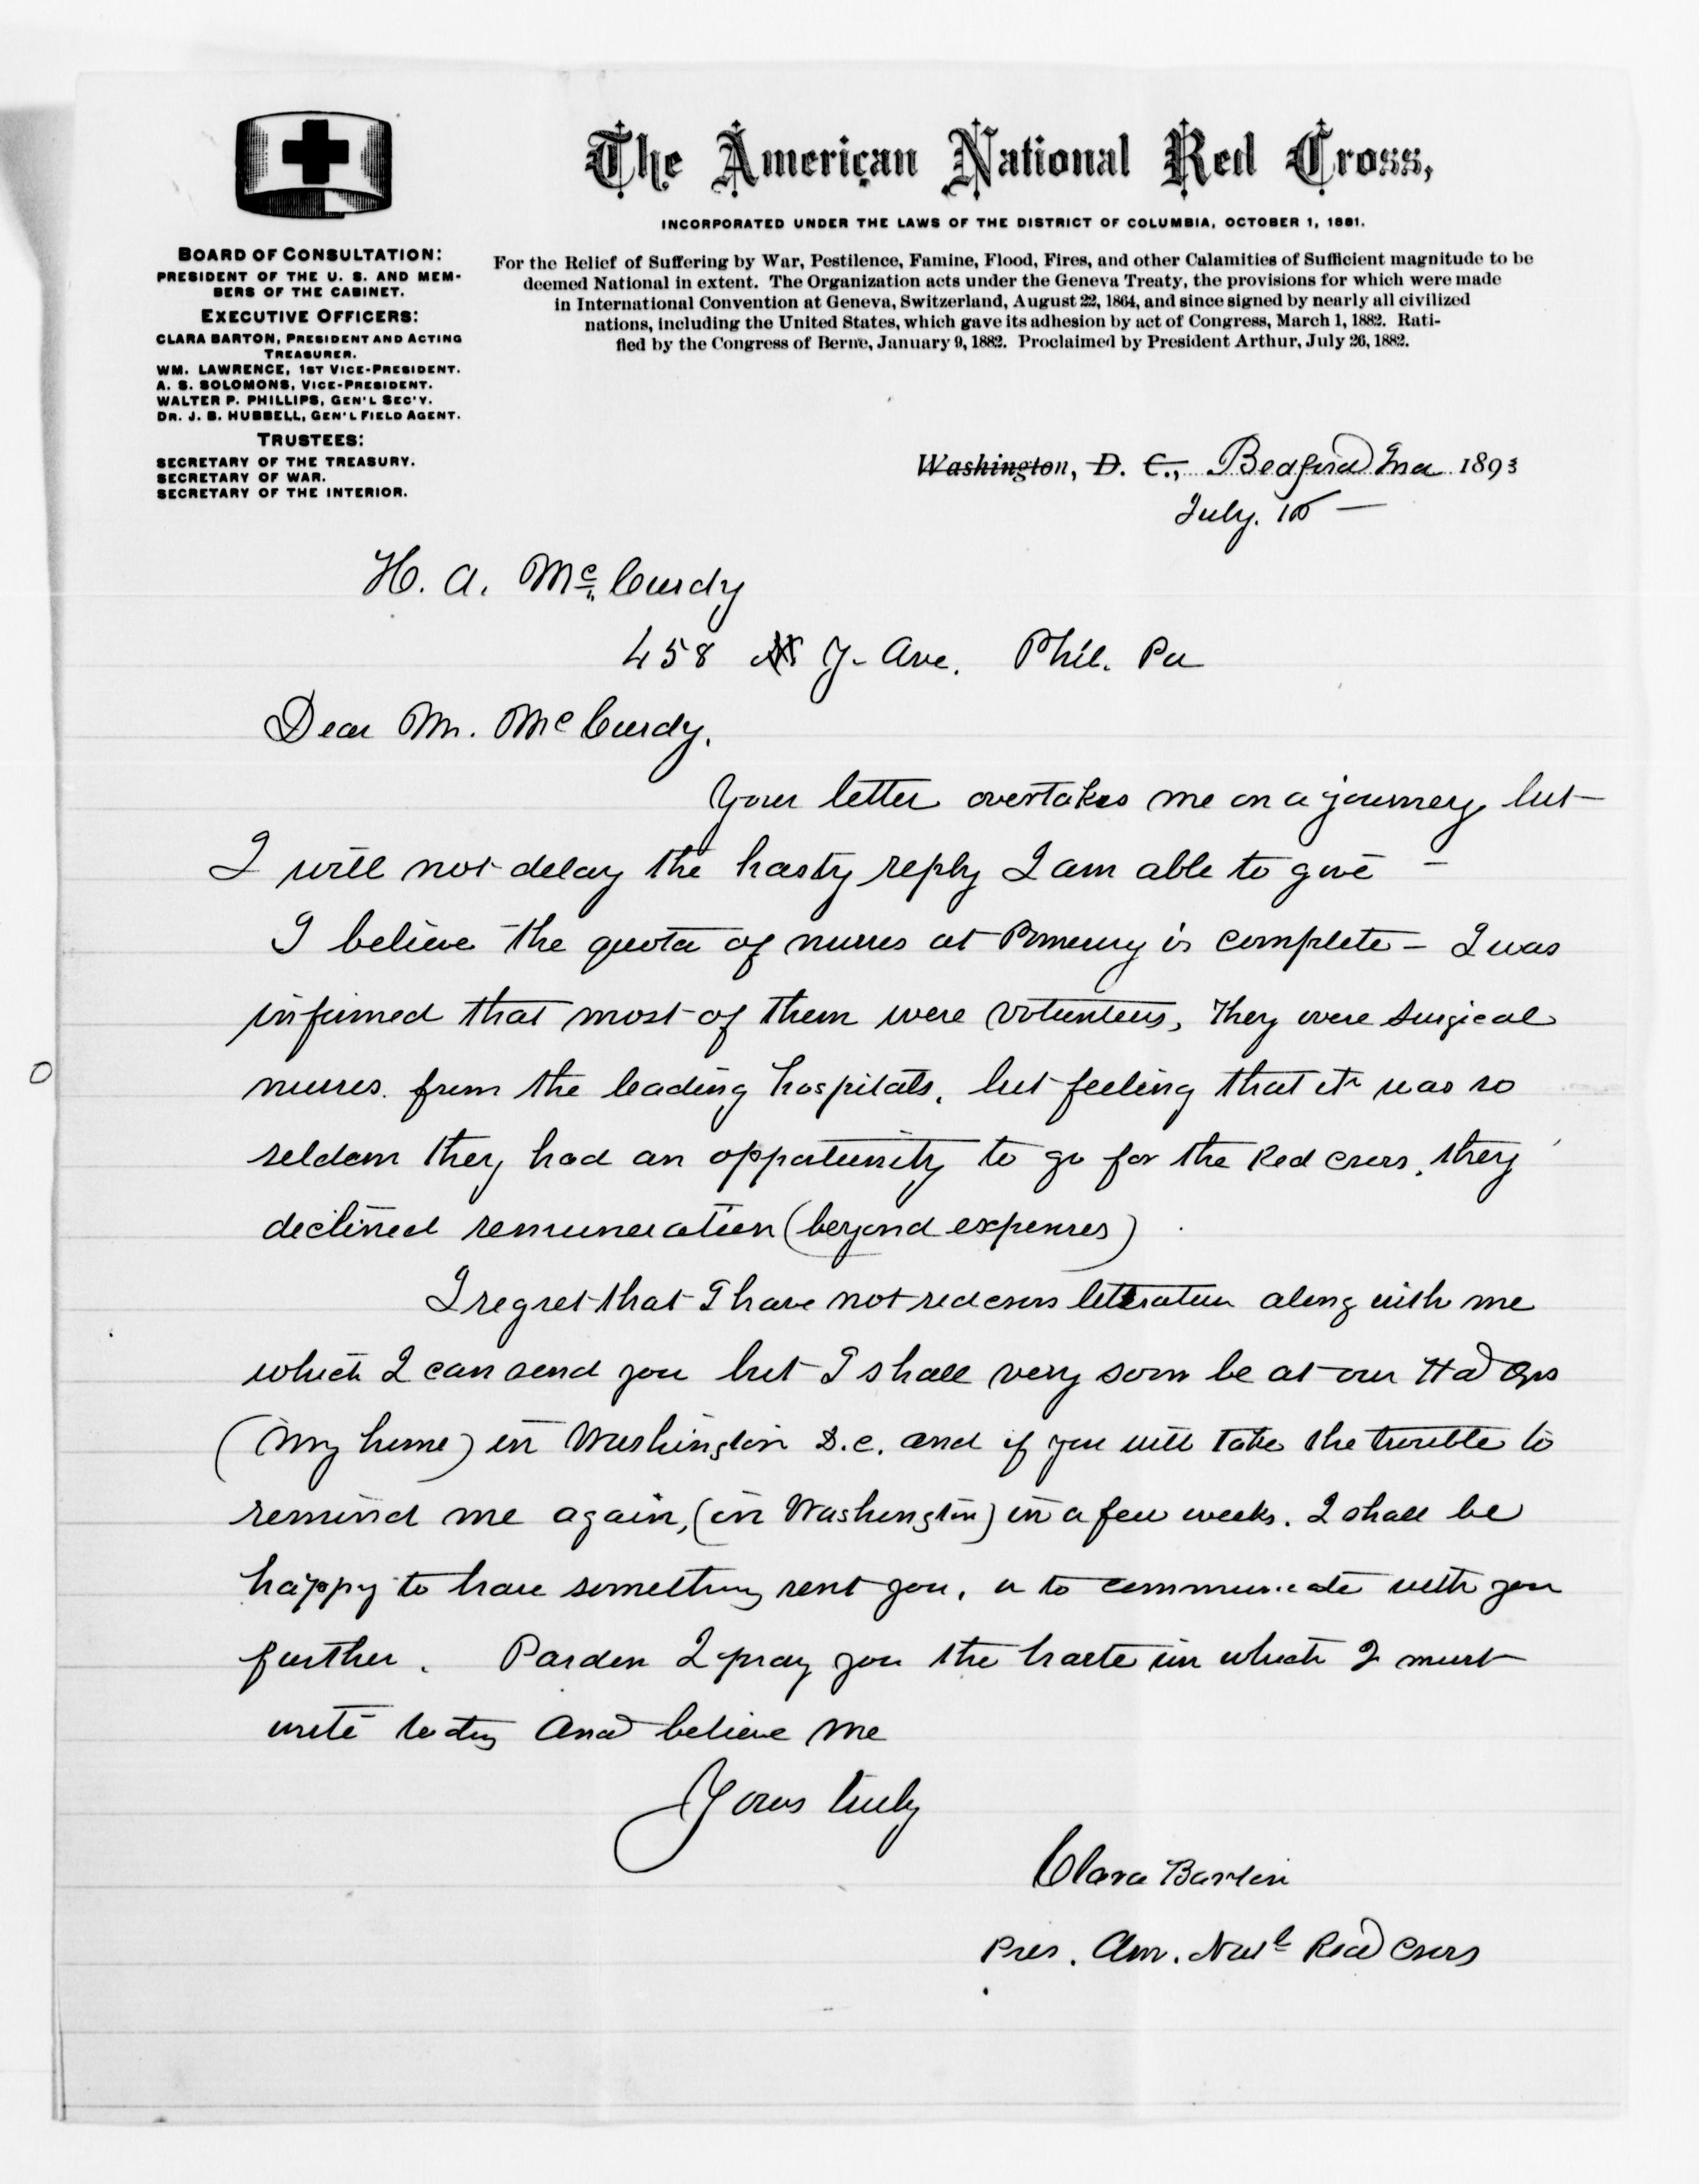 The American National Red Cross,
INCORPORATED UNDER THE LAWS OF THE DISTRICT OF COLUMBIA, OCTOBER 1, 1881.
For the Relief of Suffering by War, Pestilence, Famine, Flood, Fires, and other Calamities of Sufficient magnitude to be
deemed National in extent. The Organization acts under the Geneva Treaty, the provisions for which were made
in International Convention at Geneva, Switzerland, August 22, 1864, and since signed by nearly all civilized
nations, including the United States, which gave its adhesion by act of Congress, March 1, 1882. Rati-
fied by the Congress of Berne, January 9, 1882. Proclaimed by President Arthur, July 26, 1882.
BOARD OF CONSULTATION:
PRESIDENT OF THE U. S. AND MEM-
BERS OF THE CABINET.
EXECUTIVE OFFICERS:
CLARA BARTON, PRESIDENT AND ACTING
TREASURER.
WM. LAWRENCE, 1ST VICE-PRESIDENT.
A. S. SOLOMONS, VICE-PRESIDENT.
WALTER P. PHILLIPS, GEN'L SEC'Y.
DR. J. B. HUBBELL, GEN'L FIELD AGENT.
TRUSTEES:
SECRETARY OF THE TREASURY.
SECRETARY OF WAR.
SECRETARY OF THE INTERIOR.
Washington, D. C., Bedford Ind 1893
July. 15 —
H. A. McCurdy
458 N Y- Ave. Phil. Pa
Dear Mr. McCurdy.
Your letter overtakes me on a journey, but
I will not delay the hasty reply I am able to give –
I believe the quota of nurses at Pomeroy is complete – I was
informed that most of them were volunteers, They were surgical
nurses. from the leading hospitals, but feeling that it was so
seldom they had an opportunity to go for the Red Cross, they
declined remuneration (beyond expenses)
I regret that I have not red cross literature along with me
which I can send you but I shall very soon be at our Hd Qrs
(my home) in Washington D.C. and if you will take the trouble to
remind me again, (in Washington) in a few weeks. I shall be
happy to have something sent you, or to communicate with you
further. Pardon I pray you the haste in which I must
write today and believe me
Yours truly
Clara Barton
Pres. Am. Natl Red Cross